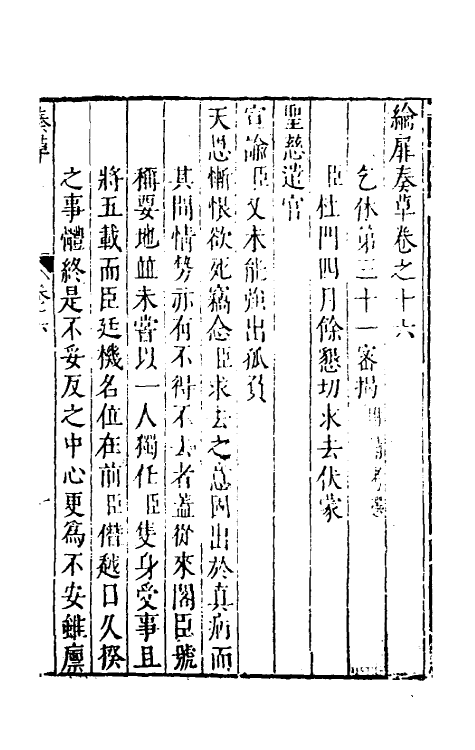 綸扉奏草卷之十六
乞休第三十一密揭
臣杜門四月餘懇切求去伏蒙
聖慈遣官
宣諭臣又未能強出孤負
天恩慚恨欲死竊念臣求去之意固出於真病而
其間情勢亦有不得不去者蓋從來閣臣號
稱要地並未嘗以一人獨任臣隻身受事且
將五載而臣廷機名位在前臣僭越日久揆
之事體終是不妥反之中心更爲不安雖廪
奏草
卷之十六
一